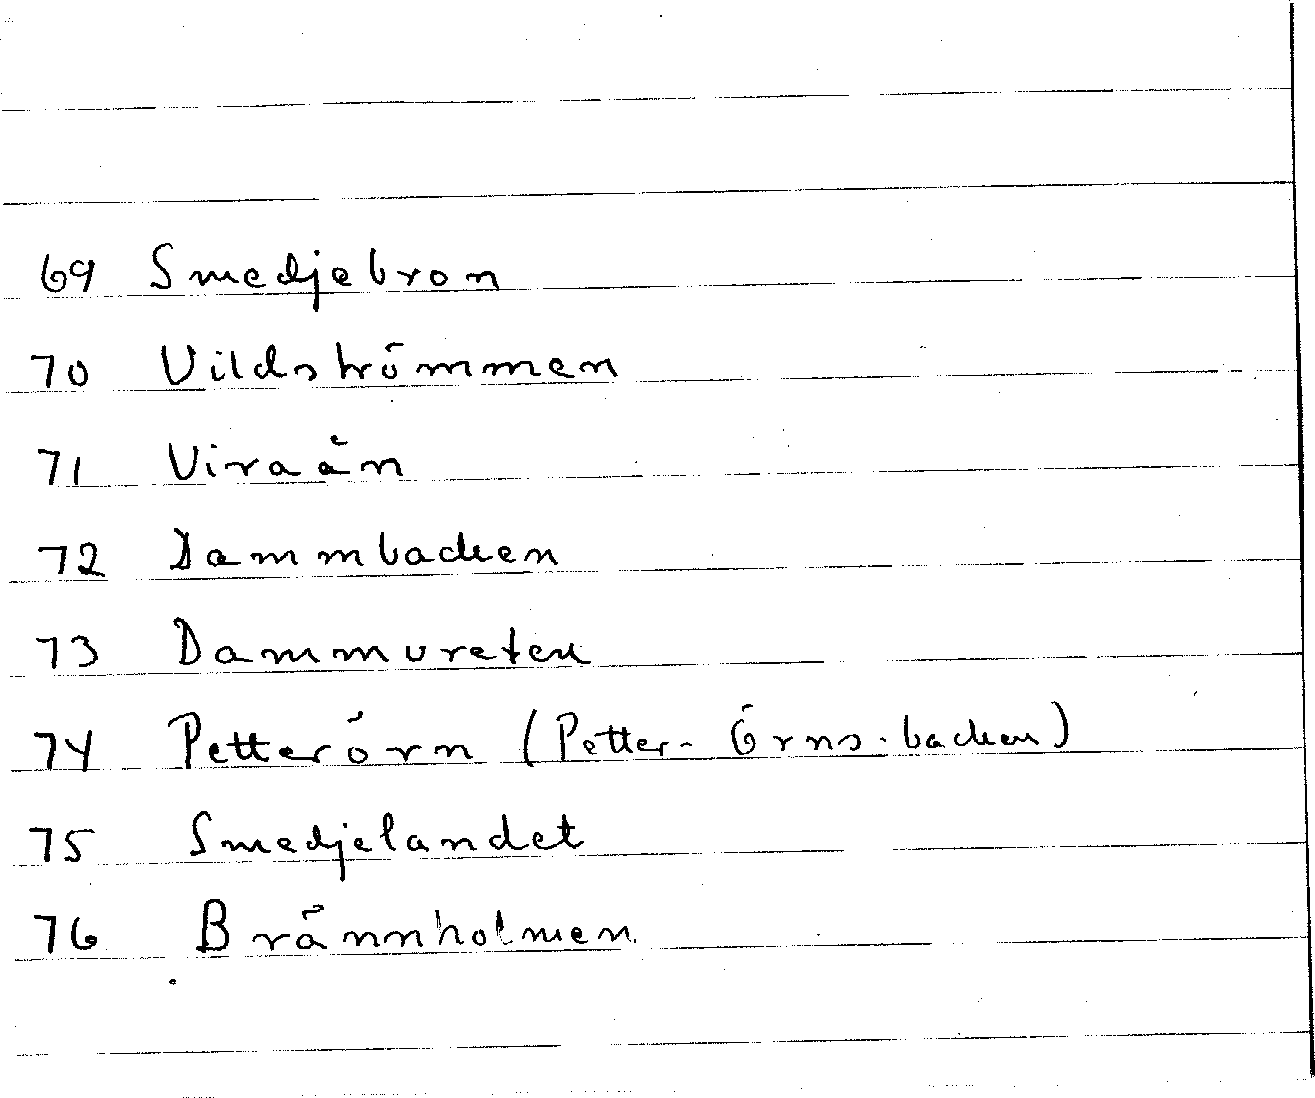 69 Smedjebron
70 Vildströmmen
71 Viraån
72 Dammbacken
73 Dammureten
74 Petterörn (Petter-Örns-backen)
75 Smedjelandet
76 Brännholmen